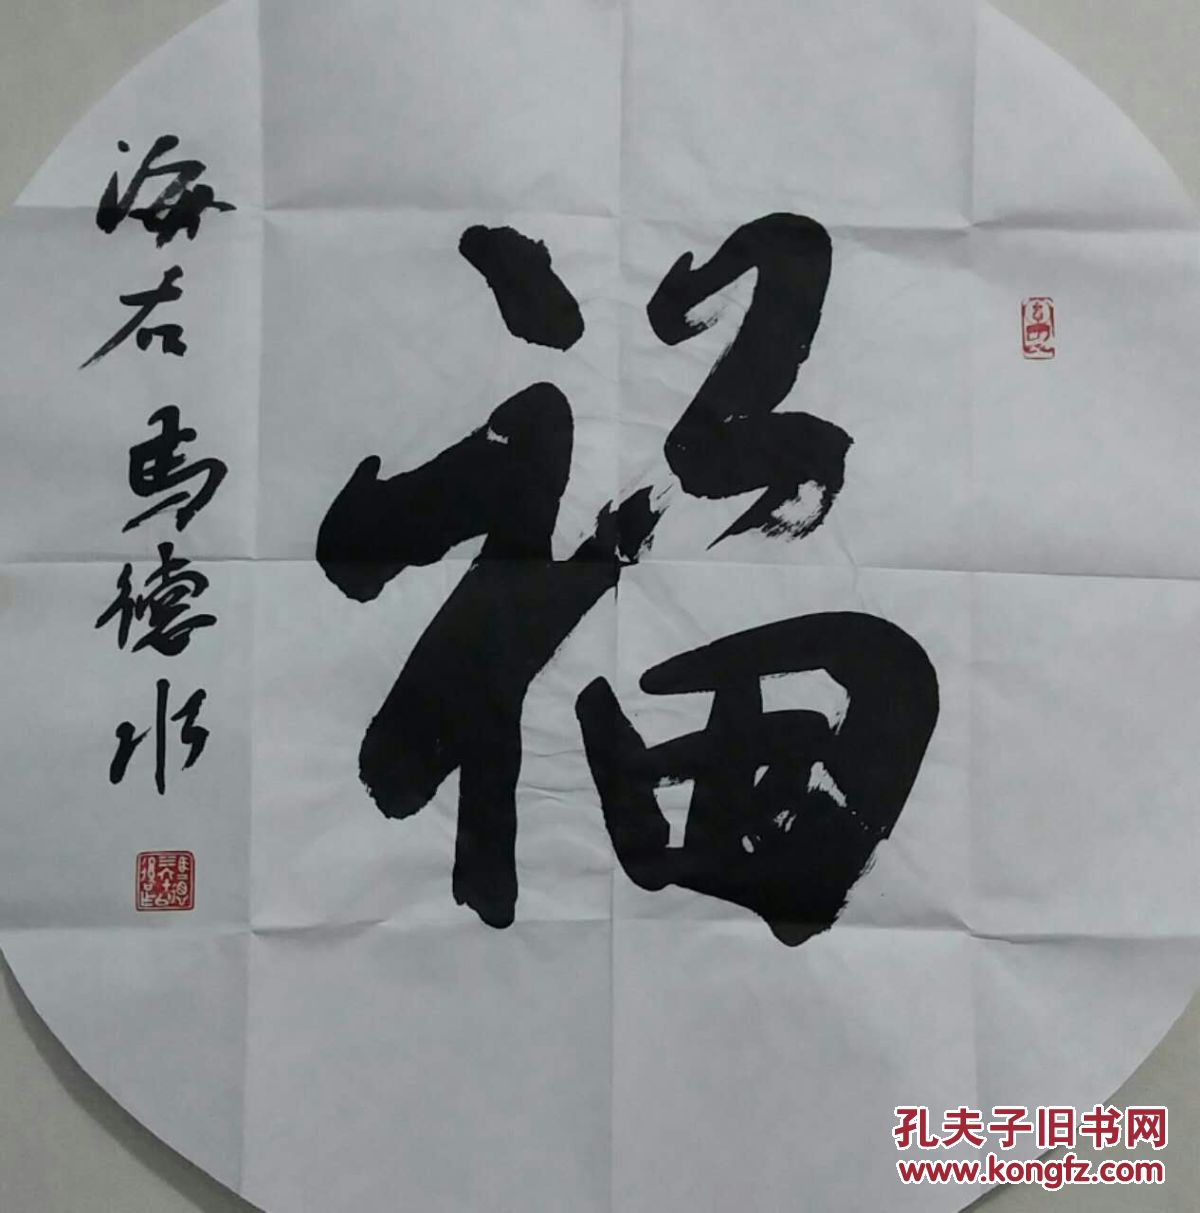 福
海右马德水
孔夫子旧书网
www.kongfz.com